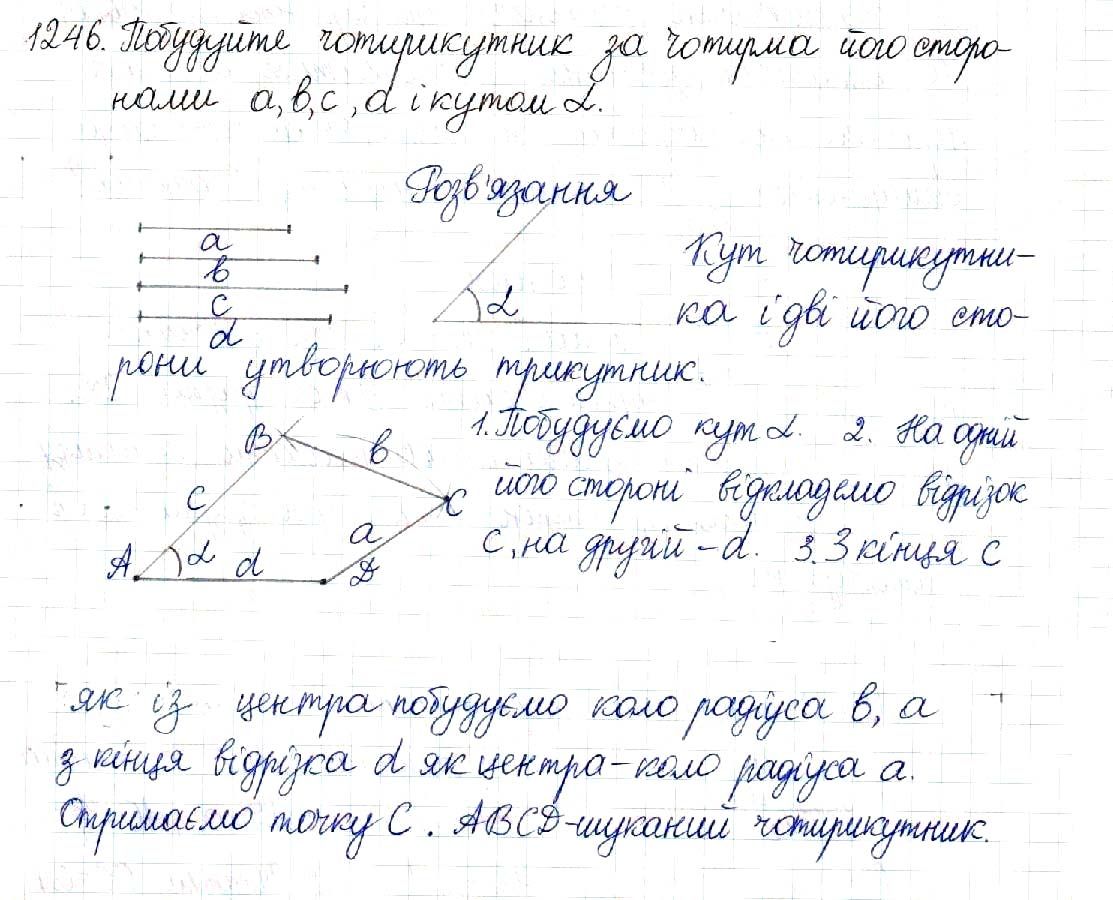 1246. Побудуйте чотирикутник за чотирма його сторо-
нами a, b, c, d і кутом α.
Розв'язання
a
b
c
d
α
Кут чотирикутни-
ка і дві його сто-
рони утворюють трикутник.
B
b
C
c
a
A
α
d
D
1. Побудуємо кут α. 2. На одній
його стороні відкладемо відрізок
c, на другій - d. 3. З кінця c
як із центра побудуємо коло радіуса b, а
з кінця відрізка d як центра - коло радіуса a.
Отримаємо точку C. ABCD - шуканий чотирикутник.